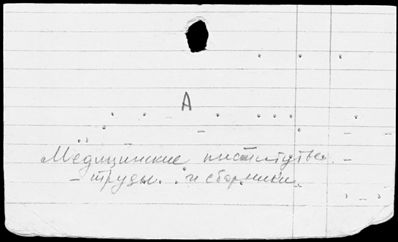 А
Медицинские институты –
– труды и сборники.